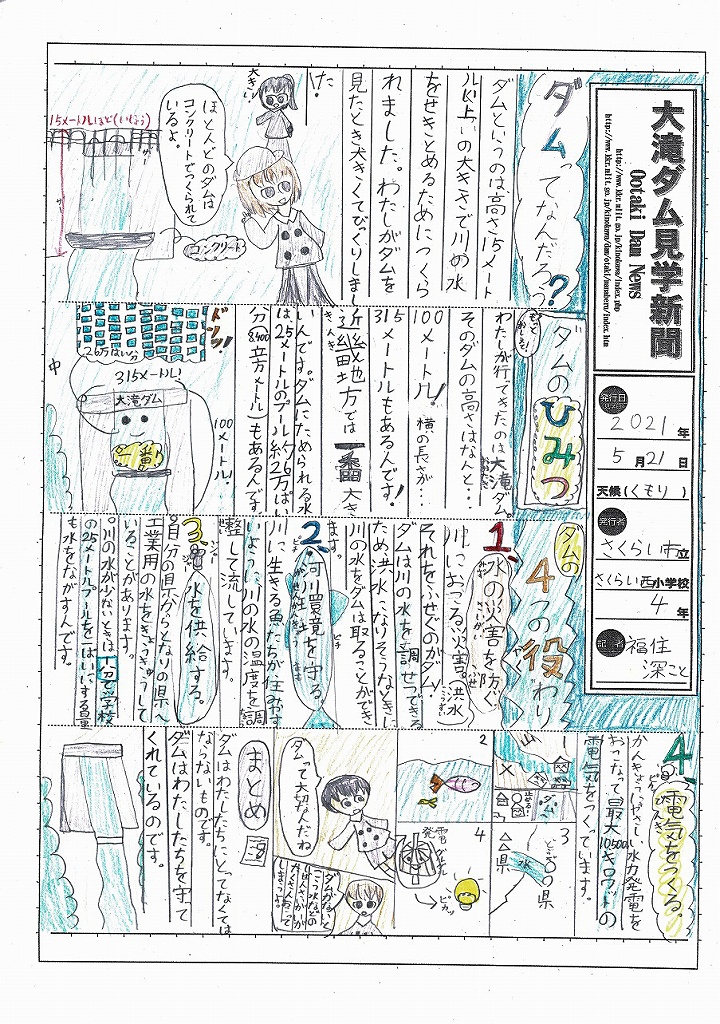 大滝ダム見学新聞
Ootaki Dam News
発行日
2021年
5月21日
天候(くもり)
発行者
さくらい市立
さくらい西小学校
4年
記者
福住
深こと
ダムってなんだろう?
ダムというのは、高さ15メート
ル以上の大きさで川の水
をせきとめるためにつくら
れました。わたしがダムを
見たとき大きくてびっくりしまし
た!
大きい
ほとんどのダムは
コンクリートでつくられて
いるよ。
15メートルほど(いじょう)
コンクリート
ダムのひみつ
わたしが行ってきたのは大滝ダム。
そのダムの高さはなんと…
100メートル!横の長さが…
315メートルもあるんです!
近畿地方では一番大き
いんです。ダムにためられる水
は25メートルのプール約26万ばい
分8400立方メートルもあるんです。
ドンッ!
26万ばい分
315メートル!
大滝ダム
一番!!
100メートル!
ダムの4つの役わり
1、水の災害を防ぐ。
川におこる災害。洪水
それをふせぐのがダム!
ダムは川の水を調せつできる
ため洪水になりそうなときに
川の水をダムは取ることができ
ます。
2、河川環境を守る。
川に生きる魚たちが住みやす
いように、川の水の温度を調
整して流しています。
3、水を供給する。
自分の県からとなりの県へ
工業用の水をきょうきゅうして
いることがあります。
川の水が少ないときは1分で学校
の25メートルプールを一ぱいにする量
も水をながすんです。
4、電気をつくる。
かんきょうにやさしい水力発電を
おこなって最大10500キロワットの
電気をつくっています。
1
ダム
2
3
○県
△県
水
4
発電
ピカッ
ダムって大切なんだね
まとめ
ダムはわたしたちにとってなくては
ならないものです。
ダムはわたしたちを守って
くれているのです。